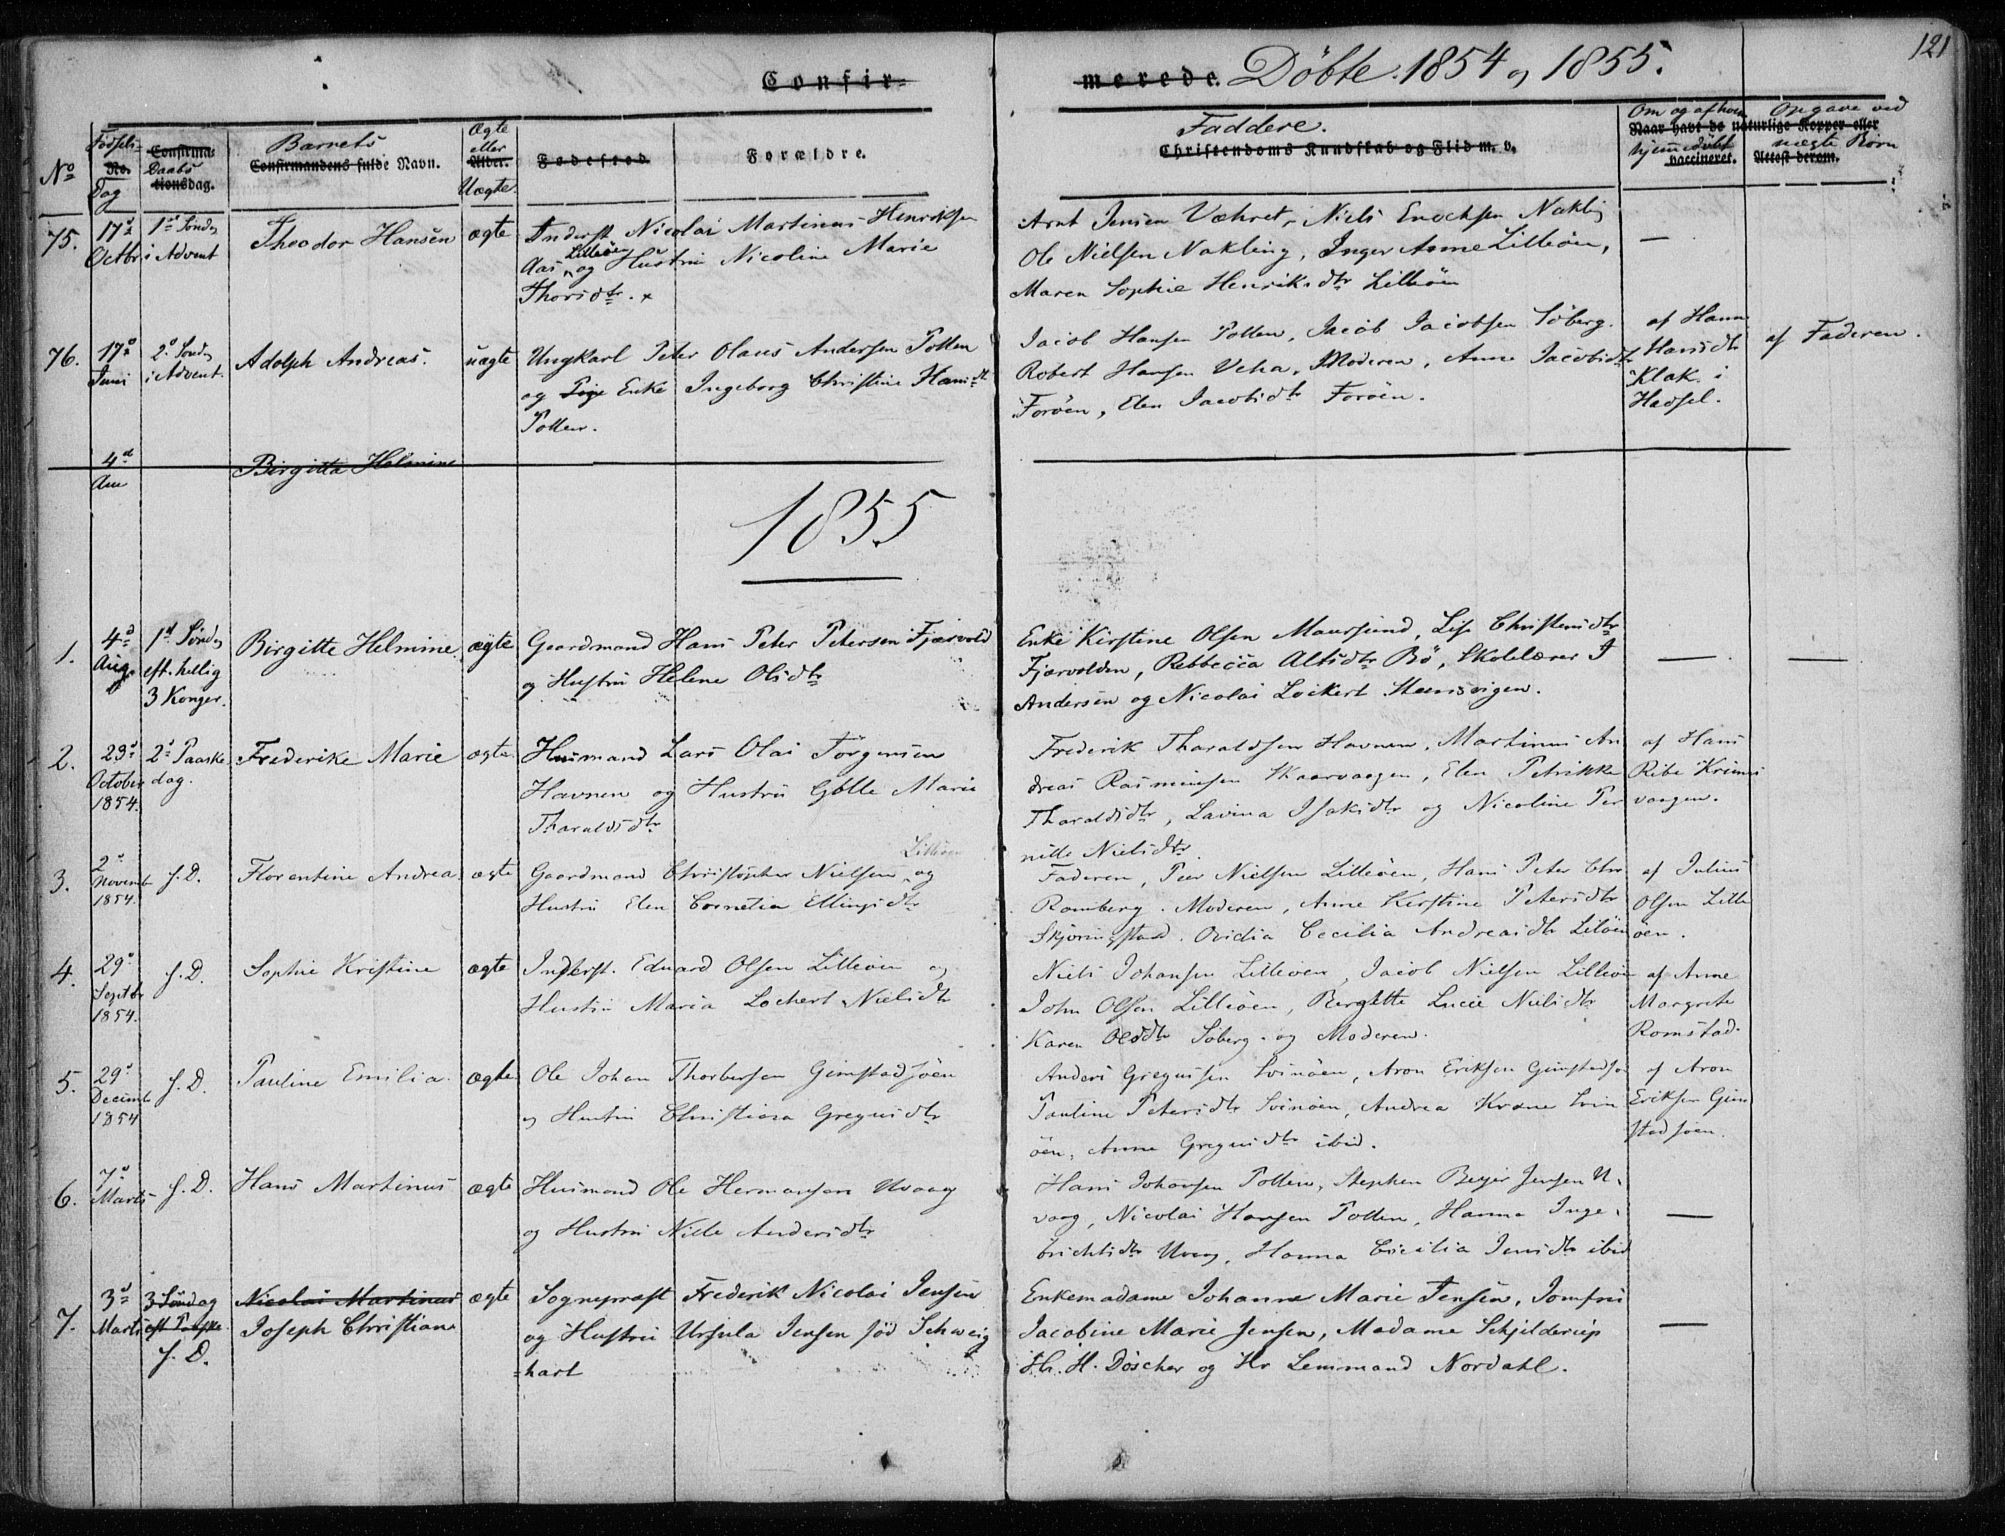 121
Confirmerede. Döbte. 1854 og 1855.
No
Födsels No. Dag
Confirmationsdag. Daabs
Barnets
Confirmandens fulde Navn.
Ægte eller Alder. Uægte.
Fødested
Forældre.
Faddere.
Christendoms Kundskab og Flid m. v.
Om og af hvem hjemmedöbt
Naar havt de naturlige Kopper eller vaccineret.
Opgave ved uægte Börn
Attest derom.
75. 17de Octbr 1ste Sönd. i Advent Theodor Hansen ægte Inderst Nicolai Martinus Henriksen
Aas Lilleöen og Hustru Nicoline Marie
Thorsdtr. x
Arnt Jensen Væhret, Niels Enochsen Nakling
Ole Nielsen Nakling, Inger Anne Lilleöen,
Maren Sophie Henriksdtr Lilleöen
—
76. 17de Juni 2d Sönd. i Advent. Adolph Andreas. uægte Ungkarl Peter Olaus Andersen Pollen
og Pige Enke Ingeborg Christine Hansdtr
Pollen.
Jacob Hansen Pollen, Jacob Jacobsen Söberg.
Robert Hansen Veha, Moderen, Anne Jacobsdtr
Foröen, Elen Jacobsdtr Foröen.
af Hanna
Hansdtr
Klak. i
Hadsel.
af Faderen.
4d Birgitta Helmine
Au
1855
1. 4de Aug. 1ste Sönd. eft. hellig 3 Konger. Birgitte Helmine. ægte Gaardmand Hans Peter Petersen Fjærvold
og Hustru Helene Olsdtr
Enke Kirstine Olsen Maursund, Lise Christensdtr
Fjærvolden, Rebbecca Altsdtr Bö, Skolelærer J
Andersen og Nicolai Lockert Steensvigen.
— —
2. 23d October 1854. 2d Paaske dag. Frederike Marie ægte. Husmand Lars Olai Jörgensen
Havnen og Hustru Golle Marie
Tharaldsdtr
Frederik Tharaldsen Havnen, Martinus An
dreas Rasmussen Skaarvaagen, Elen Petrikke
Tharaldsdtr, Lavina Isaksdtr og Nicoline Per
nille Nielsdtr.
af Hans
Ribe Krins
vaagen.
3. 2d Novemb 1854. f. D. Florentine Andrea. ægte Gaardmand Christopher Nielsen Lilleöen og
Hustru Elen Cornelia Ellingsdtr
Faderen, Peer Nielsen Lilleöen, Hans Peter Chr
Romberg. Moderen, Anne Kirstine Petersdtr
Skjöringstad. Ovidia Cecilia Andreasdtr Lilöen
af Julius
Olsen Lille
öen.
4. 29d Septbr 1854. f. D. Sophie Kristine ægte Inderst. Eduard Olsen Lilleöen og
Hustru Maria Lochert Nielsdtr
Niels Johansen Lilleöen, Jacob Nielsen Lilleöen
John Olsen Lilleöen, Bergitte Lucie Nielsdtr
Karen Olsdtr Söberg. og Moderen.
af Anne
Margrete
Romstad.
5. 29d Decemb 1854 f. D. Pauline Emilia. ægte Ole Johan Thorbersen Gimstadsjöen
og Hustru Christiana Gregusdtr
Anders Gregussen Svinöen, Aron Eriksen Gimstadsjö
Pauline Petersdtr Svinöen, Andrea Krane Svin
öen, Anne Gregusdtr ibid.
af Aron
Eriksen Gim
stadsjöen.
6. 7d Marts f. D. Hans Martinus ægte Husmand Ole Hermansen Uvaag
og Hustru Nille Andersdtr
Hans Johansen Pollen, Stephen Beyer Jensen U,
vaag, Nicolai Hansen Pollen, Hanna Inge,
brichtsdtr Uvaag, Hanna Cecilia Jensdtr ibid
—
7. 3d Marts 3 Söndag eft Paaske. f. D. Nicolai Martinus
Joseph Christian ægte Sognepræst Frederik Nicolai Jensen
og Hustru Ursula Jensen föd Schweig
=hart
Enkemadame Johanne Marie Jensen, Jomfru
Jacobine Marie Jensen, Madame Schjelderup
Hr. H. Döscher og Hr Lemmand Nordahl.
—